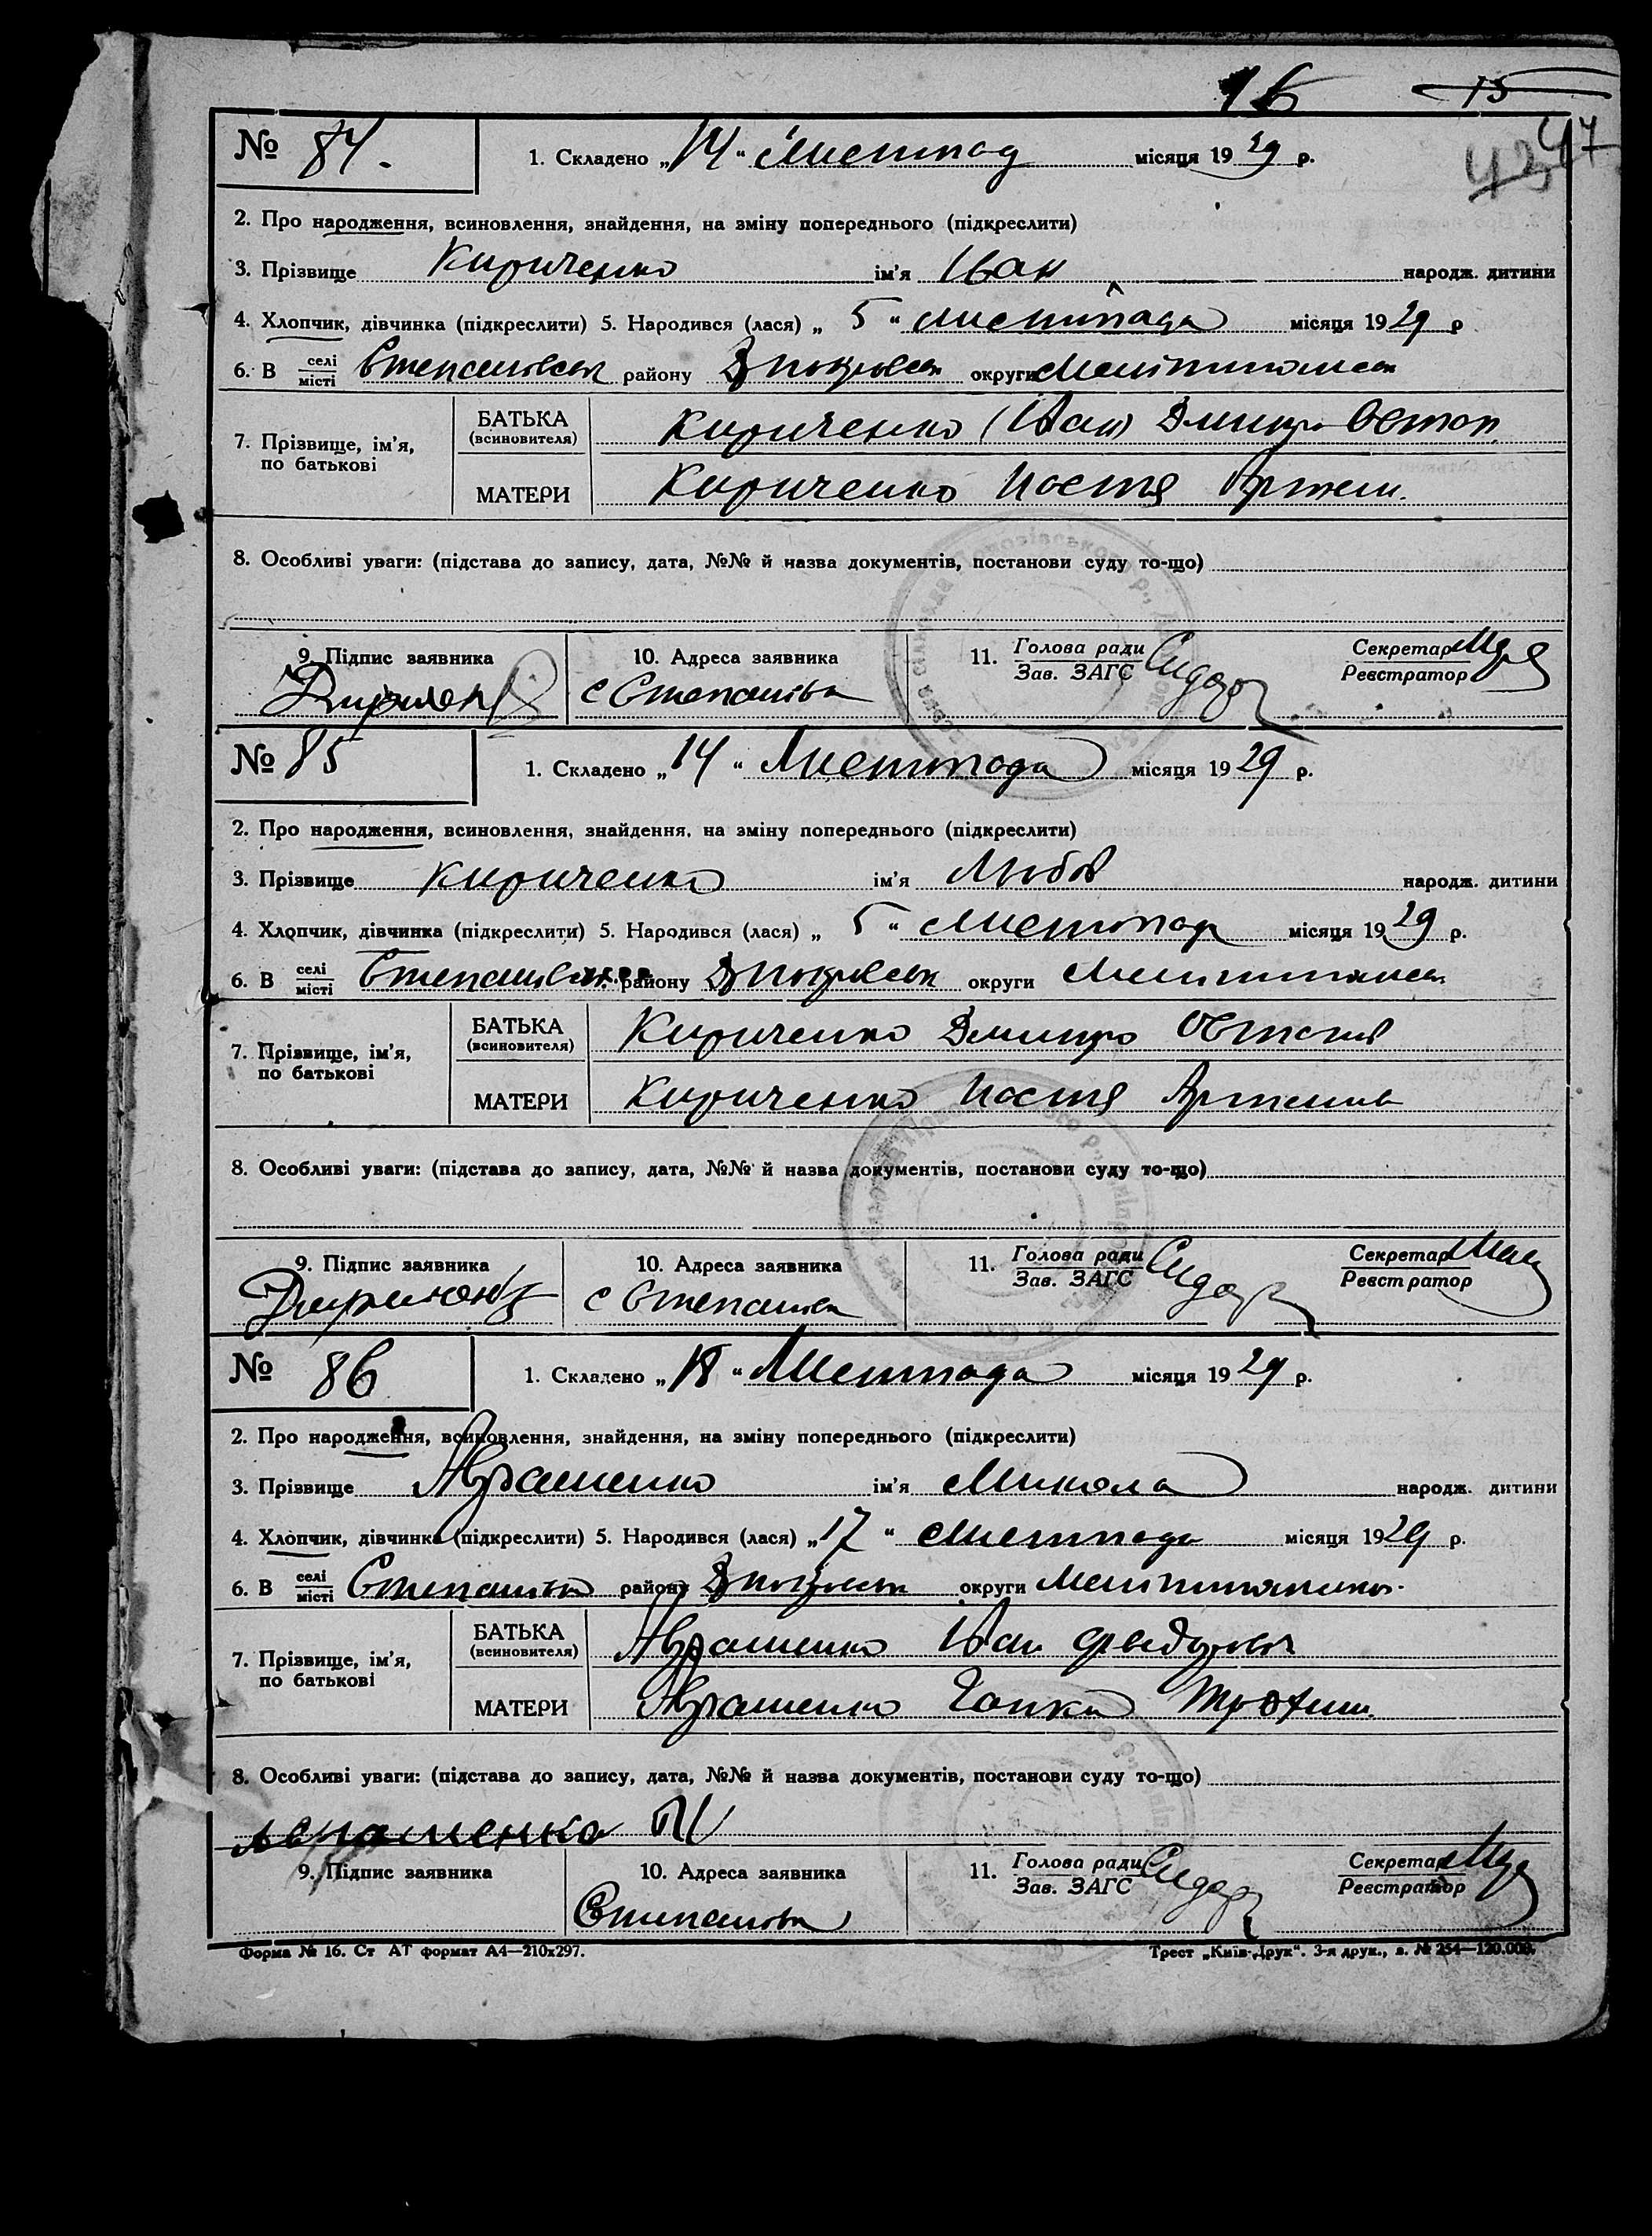 16 15
47
43
№ 84. 1. Складено „14“ Листопад місяця 1929 р.
2. Про народження, всиновлення, знайдення, на зміну попереднього (підкреслити)
3. Прізвище Кириченко ім'я Іван народж. дитини
4. Хлопчик, дівчинка (підкреслити) 5. Народився (лася) „ 5 “ листопада місяця 1929 р
6. В селі місті району округи
7. Прізвище, ім'я, по батькові
БАТЬКА (всиновителя) Кириченко (Іван) Дмитро Остап.
МАТЕРИ Кириченко Настя Артем.
8. Особливі уваги: (підстава до запису, дата, №№ й назва документів, постанови суду то-що)
9. Підпис заявника 10. Адреса заявника 11. Голова ради Секретар
Зав. ЗАГС Реєстратор
с Степанівка
№ 85 1. Складено „14“ Листопада місяця 1929 р.
2. Про народження, всиновлення, знайдення, на зміну попереднього (підкреслити)
3. Прізвище Кириченко ім'я Любов народж. дитини
4. Хлопчик, дівчинка (підкреслити) 5. Народився (лася) „ 5 “ листопад місяця 1929 р.
6. В селі місті району округи
7. Прізвище, ім'я, по батькові
БАТЬКА (всиновителя) Кириченко Дмитро Остапов
МАТЕРИ Кириченко Настя Артемів
8. Особливі уваги: (підстава до запису, дата, №№ й назва документів, постанови суду то-що)
9. Підпис заявника 10. Адреса заявника 11. Голова ради Секретар
Зав. ЗАГС Реєстратор
с Степанівка
№ 86 1. Складено „18“ Листопада місяця 1929 р.
2. Про народження, всиновлення, знайдення, на зміну попереднього (підкреслити)
3. Прізвище Авраменко ім'я Микола народж. дитини
4. Хлопчик, дівчинка (підкреслити) 5. Народився (лася) „17“ листопада місяця 1929 р.
6. В селі місті Степанівка району округи
7. Прізвище, ім'я, по батькові
БАТЬКА (всиновителя) Авраменко Іван
МАТЕРИ Авраменко Гапка Трохим.
8. Особливі уваги: (підстава до запису, дата, №№ й назва документів, постанови суду то-що)
Авраменко
9. Підпис заявника 10. Адреса заявника 11. Голова ради Секретар
Зав. ЗАГС Реєстратор
Степанівка
Форма № 16. Ст АТ формат А4—210х297. Трест „Київ-Друк“. 3-я друк., з. № 254—120.000.